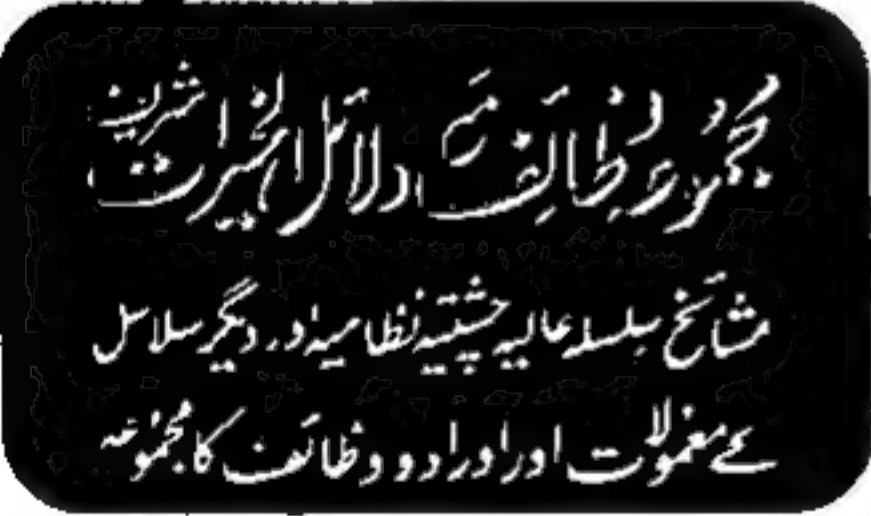 مجموعہ وظائف مع دلائل الخیرات شریف
مشائخ سلسلہ عالیہ چشتیہ نظامیہ اور دیگر سلاسل
کے معمولات اور اوراد و وظائف کا مجموعہ